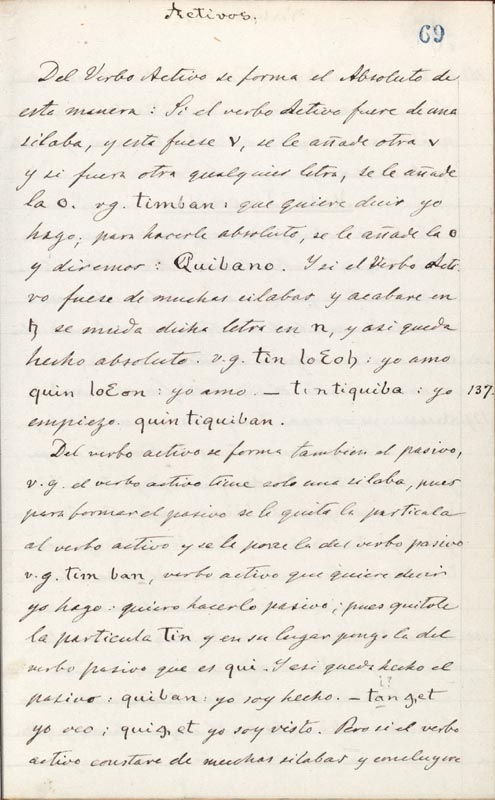 Activos.
69
Del Verbo Activo se forma el Absoluto de
esta manera: Si el verbo Activo fuere de una
silaba, y esta fuese v, se le añade otra v
y si fuera otra qualquier letra, se le añade
la o. vg. timban: que quiere decir yo
hago; para hacerle absoluto, se le añade la o
y diremos: Quibano. Y si el Verbo Acti-
vo fuese de muchas silabas y acabare en
ꜧ se muda dicha letra en n, y asi queda
hecho absoluto. v.g. tin loƐoꜧ: yo amo
quin loƐon: yo amo. – tintiquiba: yo 137.
empiezo. quintiquiban.
Del verbo activo se forma tambien el pasivo,
v.g. el verbo activo tiene solo una silaba, pues
para formar el pasivo se le quita la particula
al verbo activo y se le pone la del verbo pasivo
v.g. tim ban, verbo activo que quiere decir
yo hago: quiero hacerlo pasivo; pues quitole
la particula tin y en su lugar pongo la del
verbo pasivo que es qui. Y asi queda hecho el
pasivo: quiban: yo soy hecho. – tanꜫet
yo veo; quiꜫet yo soy visto. Pero si el verbo
activo constare de muchas silabas y concluyere